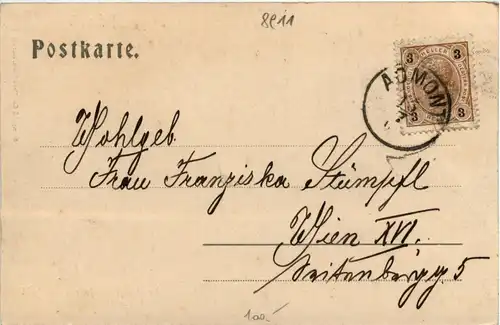 8811
Postkarte.
3 HELLER 3
ADMONT
3 3
Wohlgeb
Frau Franziska Stümpfl
Wien XVI.
Seitenbergg 5
100.-